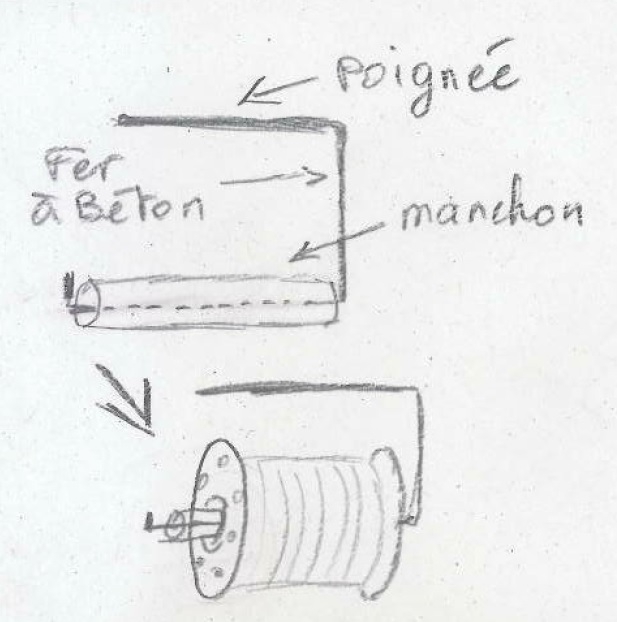 Poignée
Fer
à Béton
manchon